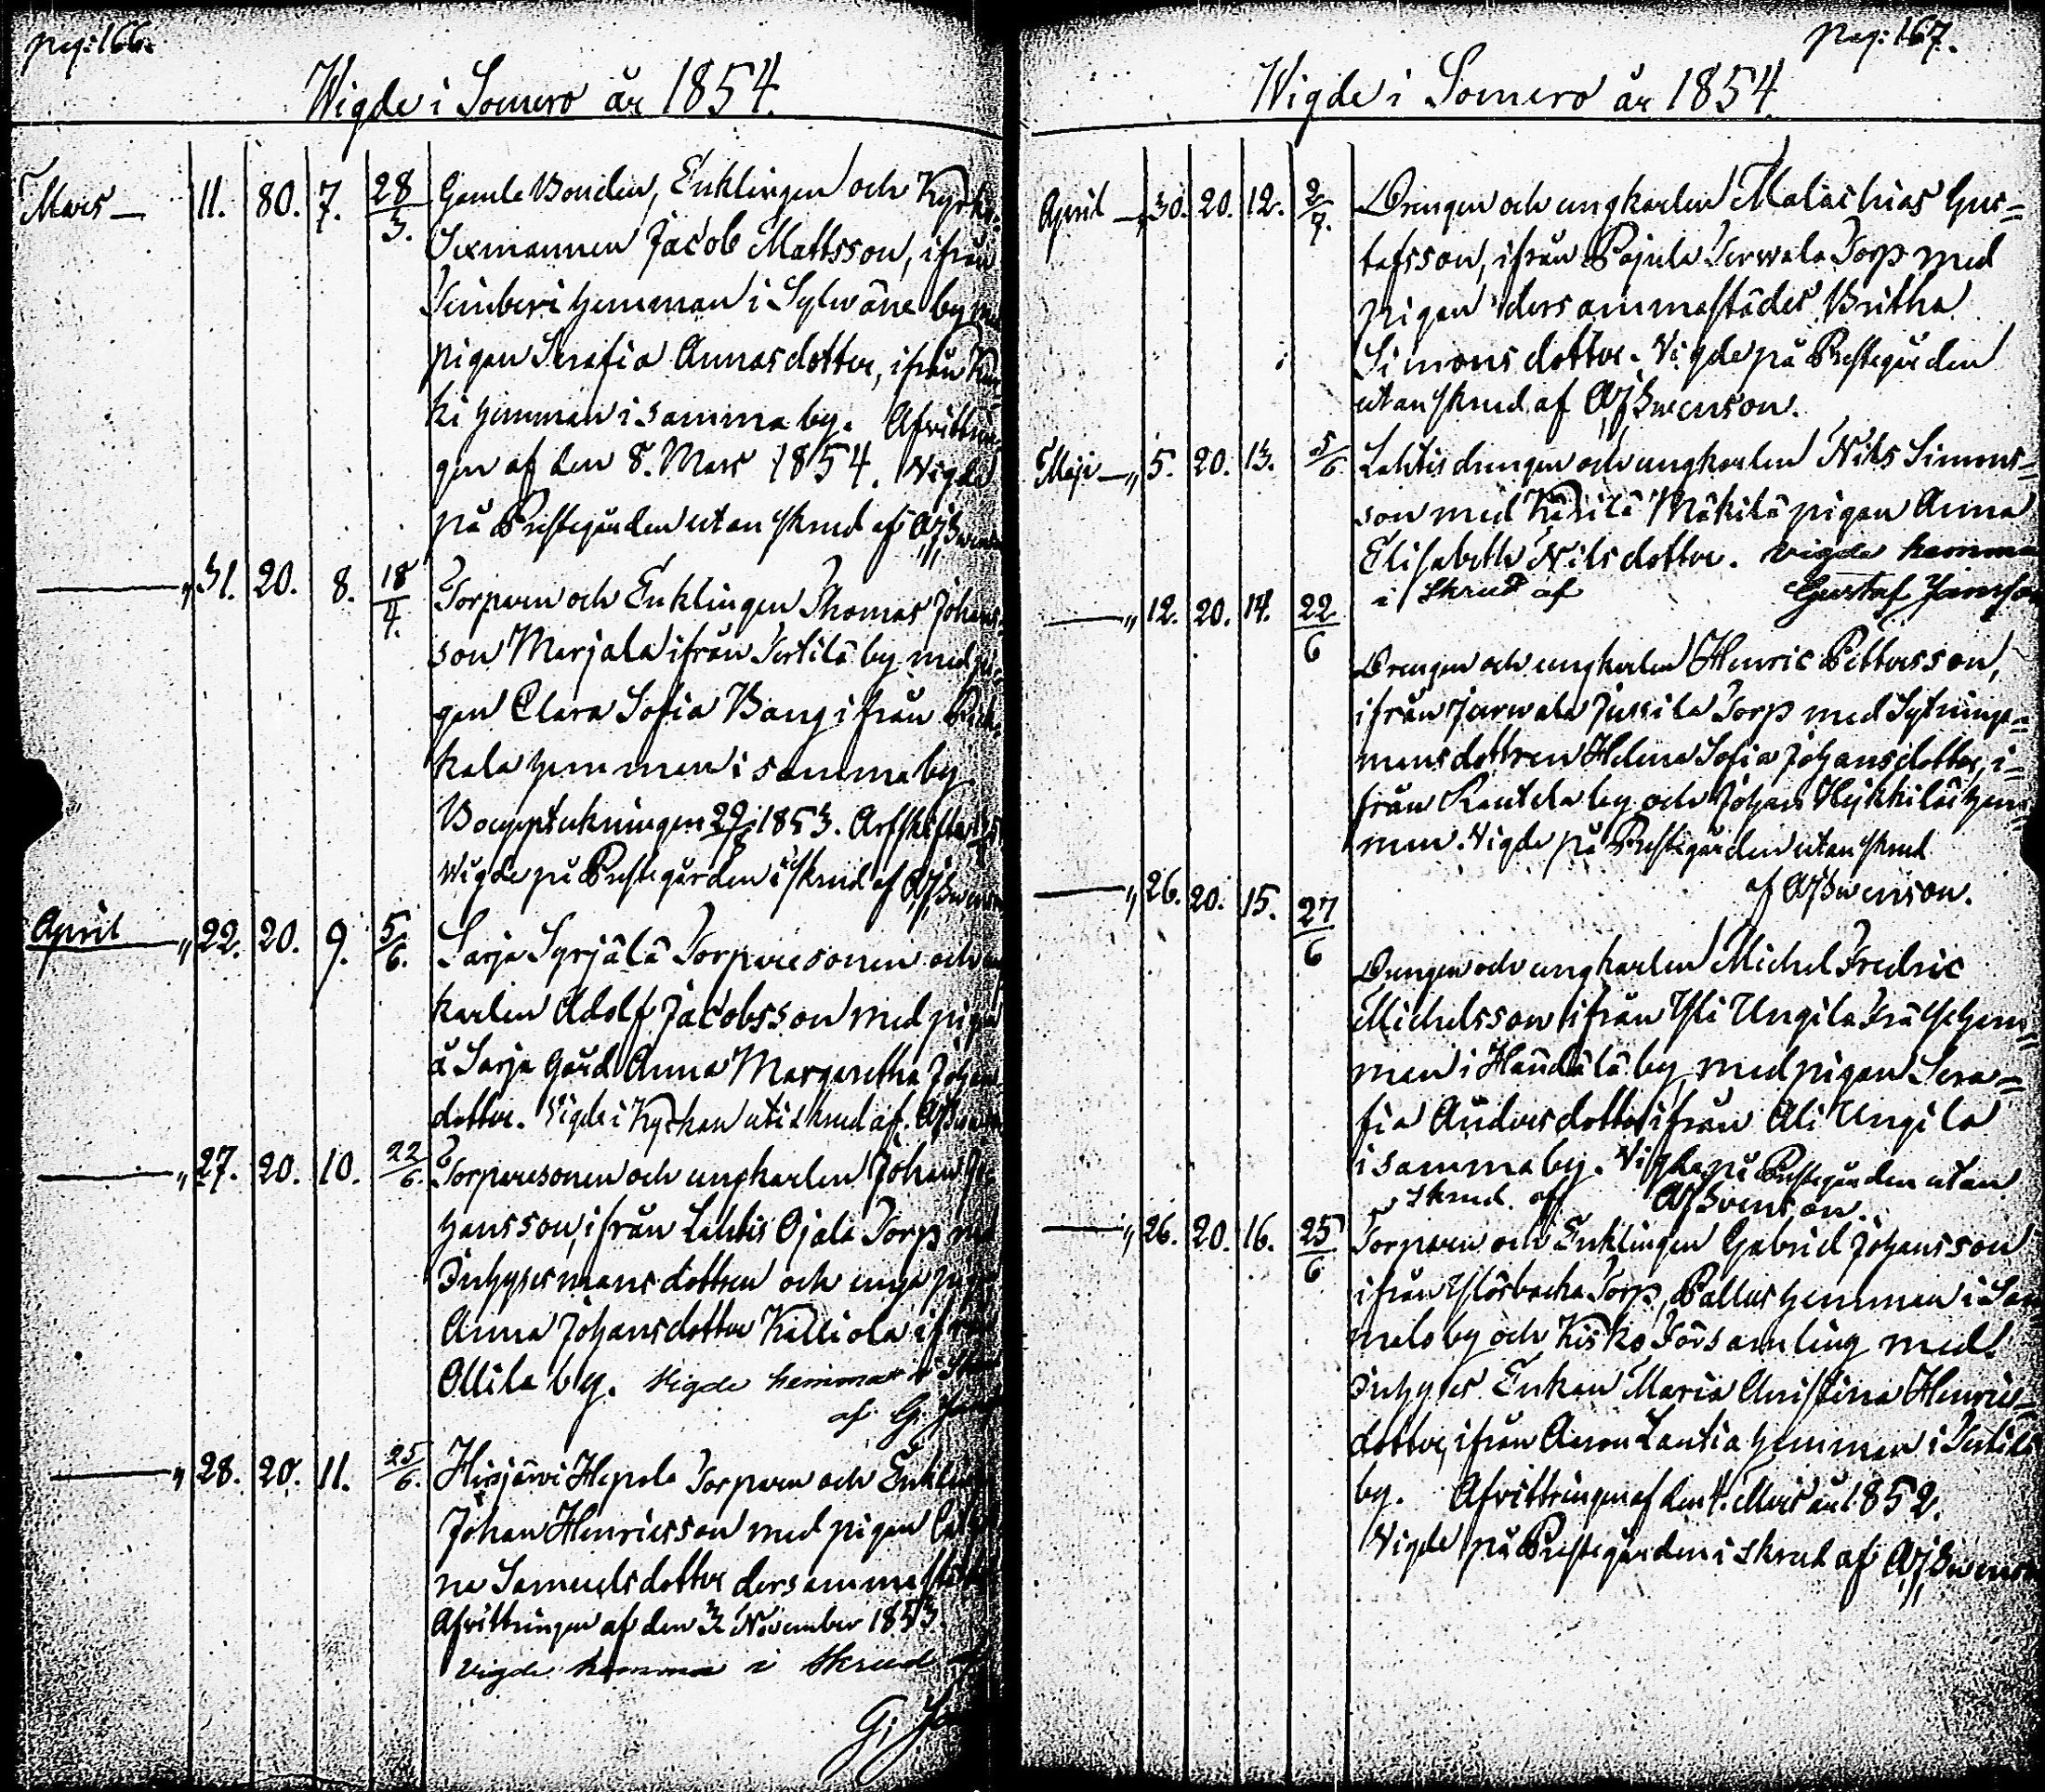 pag: 166.
Wigde i Somero år 1854.
Mars — 11. 80. 7. 28/3. Gamle Bonden, Enklingen och Kyrko-
Sexmannen Jacob Mattsson, ifrån
hemman i Sylwäne by
pigan Serafia Annasdotter, ifrån
ki hemman i samma by. Afvittrin-
gen af den 8. Mars 1854. Vigde
på Prestegården utan skrud af AJSwenson
— „ 31. 20. 8. 18/4. Torparen och Enklingen Thomas Johans-
son Marjala ifrån Terttilä by med pi-
gan Clara Sofia Bang ifrån
kala hemman i samma by
Bouppteckningen 1853. Arfskifte
Wigde på Prestegården i skrud af AJSwenson
April — „ 22. 20. 9. 5/6. Sarja Syrjälä Torparesonen och
karlen Adolf Jacobsson med pigan
å Sarja Gård Anna Margaretha Johans
dotter. Vigde i Kyrkan uti skrud af AJSwenson
— „ 27. 20. 10. 22/6. Torparesonen och ungkarlen Johan Jo-
hansson, ifrån Lahtis Ojala Torp med
Inhysesmansdottren och unga pigan
Anna Johansdotter Kalliola ifrån
Ollila by. Vigde hemma i Skrud
af G.
— „ 28. 20. 11. 25/6. Hirsjärvi Hepola Torparen och Enklingen
Johan Henricsson med pigan
na Samuelsdotter dersammastädes
Afvittringen af den 3 November 1853.
Vigde hemma i Skrud
G.
pag: 167.
Wigde i Somero år 1854.
April — „ 30. 20. 12. 2/7. Drengen och ungkarlen Malachias Gus-
tafsson, ifrån Pajula Torp med
pigan dersammastädes Britha
Simonsdotter. Vigde på Prestegården
utan skrud af AJSwenson.
Maji — „ 5. 20. 13. 5/6. Lahtis drengen och ungkarlen Nils Simons-
son med Häntälä Mäkilä pigan Anna
Elisabeth Nilsdotter. Vigde hemma
i Skrud af Gustaf
— „ 12. 20. 14. 22/6 Drengen och ungkarlen Henric Pettersson,
ifrån Jarwala Jussila Torp med Sytnings-
mansdottren Helena Sofia Johansdotter, i-
från Rautela by och Johan Heikkilä hem-
man. Vigde på Prestegården utan skrud
af AJSwenson.
— „ 26. 20. 15. 27/6 Drengen och ungkarlen Michel Fredric
Michelsson ifrån Yli Ungila hem-
man i Häntälä by med pigan Sera-
fia Andersdotter ifrån Ali Ungila
i samma by. Vigde på Prestegården utan
skrud af AJSwenson.
— „ 26. 20. 16. 25/6 Torparen och Enklingen Gabriel Johansson
ifrån Torp, Pallas hemman i
malo by och Kisko Församling med
Inhyses Enkan Maria Christina Henrics-
dotter, ifrån Lautia hemman i Terttilä
by. Afvittringen af den 4. Mars år 1852.
Vigde på Prestegården i skrud af AJSwenson